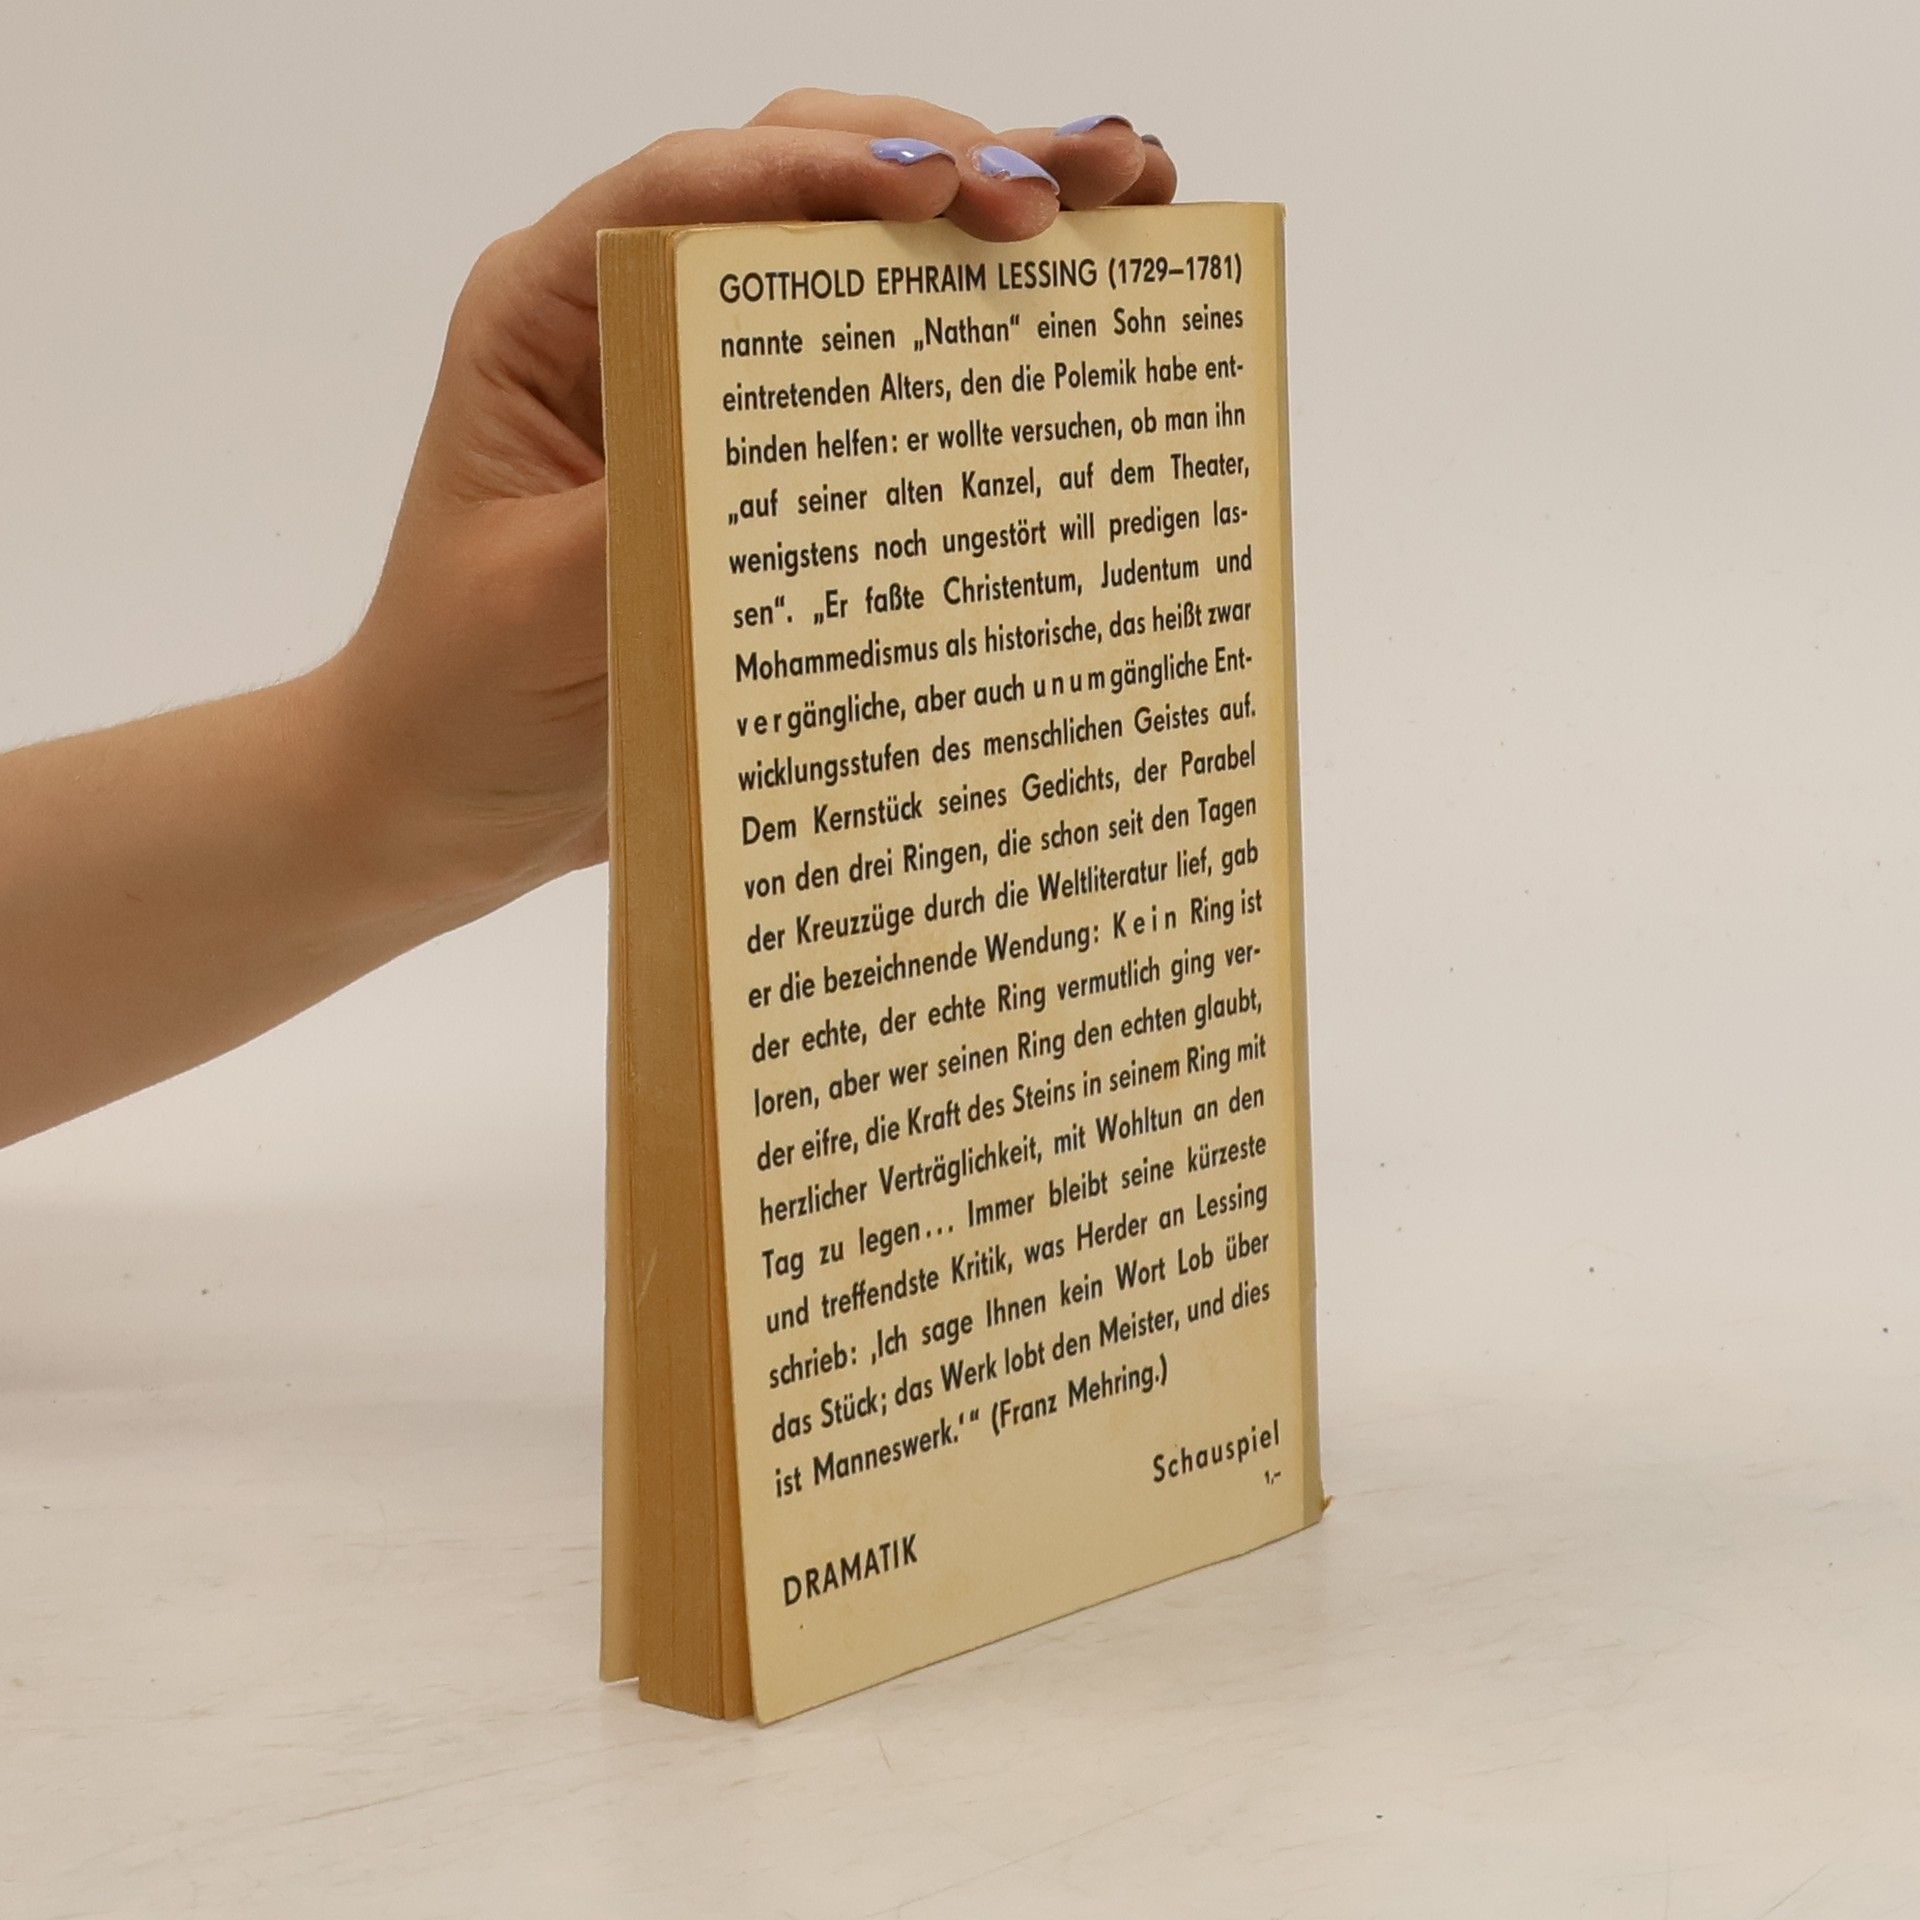 GOTTHOLD EPHRAIM LESSING (1729–1781)
nannte seinen „Nathan“ einen Sohn seines
eintretenden Alters, den die Polemik habe ent-
binden helfen: er wollte versuchen, ob man ihn
„auf seiner alten Kanzel, auf dem Theater,
wenigstens noch ungestört will predigen las-
sen“. „Er faßte Christentum, Judentum und
Mohammedismus als historische, das heißt zwar
vergängliche, aber auch unumgängliche Ent-
wicklungsstufen des menschlichen Geistes auf.
Dem Kernstück seines Gedichts, der Parabel
von den drei Ringen, die schon seit den Tagen
der Kreuzzüge durch die Weltliteratur lief, gab
er die bezeichnende Wendung: Kein Ring ist
der echte, der echte Ring vermutlich ging ver-
loren, aber wer seinen Ring den echten glaubt,
der eifre, die Kraft des Steins in seinem Ring mit
herzlicher Verträglichkeit, mit Wohltun an den
Tag zu legen... Immer bleibt seine kürzeste
und treffendste Kritik, was Herder an Lessing
schrieb: ‚Ich sage Ihnen kein Wort Lob über
das Stück; das Werk lobt den Meister, und dies
ist Manneswerk.‘“ (Franz Mehring.)
Schauspiel
1,–
DRAMATIK